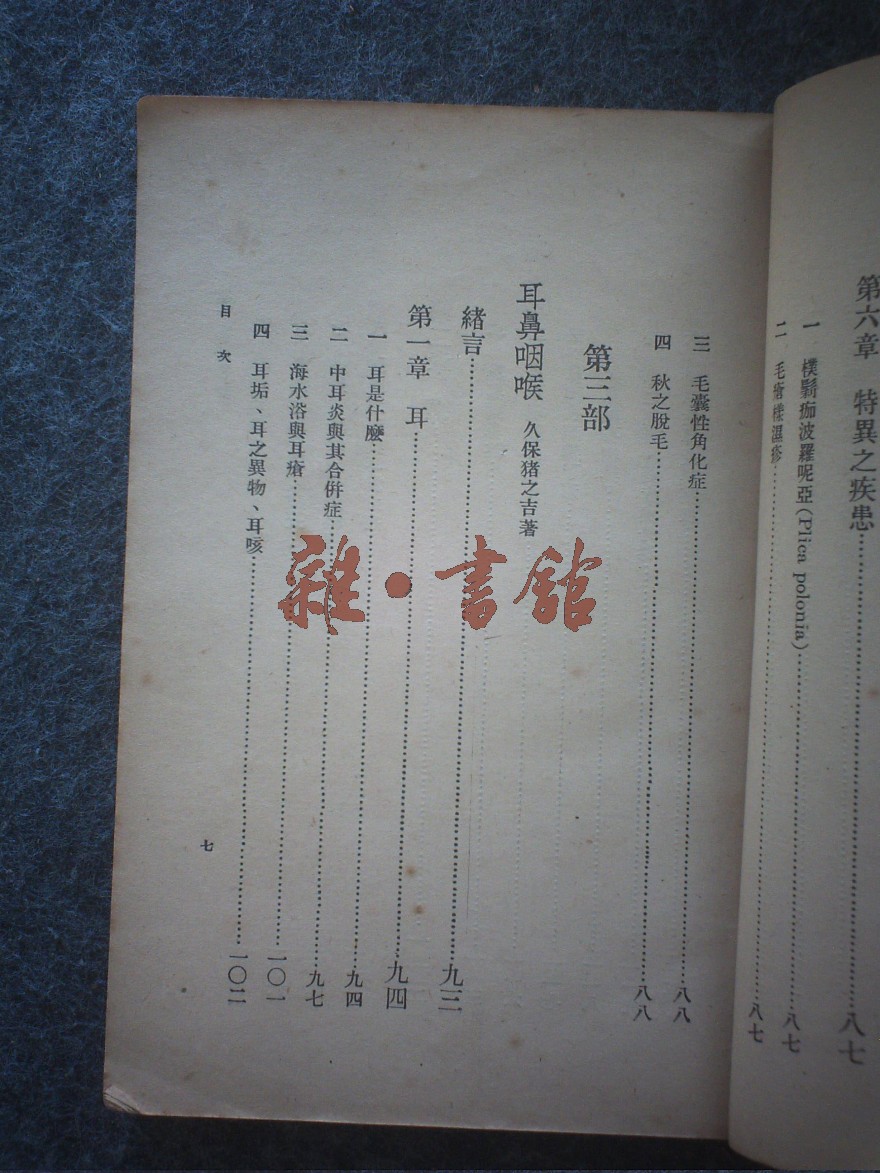 第六章　特異之疾患……八七
一　樸鬎痂波羅呢亞(Plica polonia)……八七
二　毛瘡樣濕疹……八七
三　毛囊性角化症……八八
四　秋之脫毛……八八
第三部
耳鼻咽喉　久保猪之吉著
緒言……九三
第一章　耳……九四
一　耳是什麼……九四
二　中耳炎與其合併症……九七
三　海水浴與耳瘡……一〇一
四　耳垢、耳之異物、耳咳……一〇二
目次
七
雜·書館